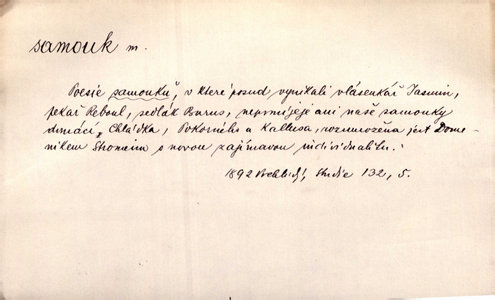 samouk m.
Poesie samouků, v které posud vynikali vlásenkář Jasmin,
pekař Reboul, sedlák Burns, nepomíjeje ani naše samouky
domácí, Chládka, Pokorného a Kaltusa, rozmnožena jest Dome-
nikem Stroncim s novou zajímavou individualitu.
1892 Vrchlický, Studie 132, 5.